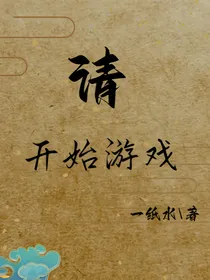 请
开始游戏
一纸水\著